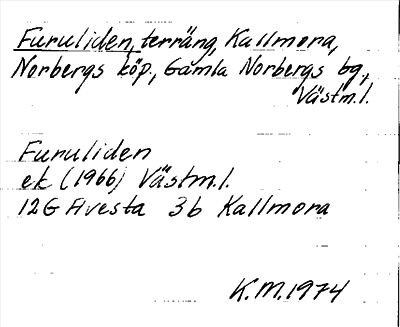 Furuliden, terräng, Kallmora,
Norbergs köp., Gamla Norbergs bg.,
Västm.l.
Furuliden
ek (1966) Västm.l.
12G Avesta 3b Kallmora
K.M. 1974